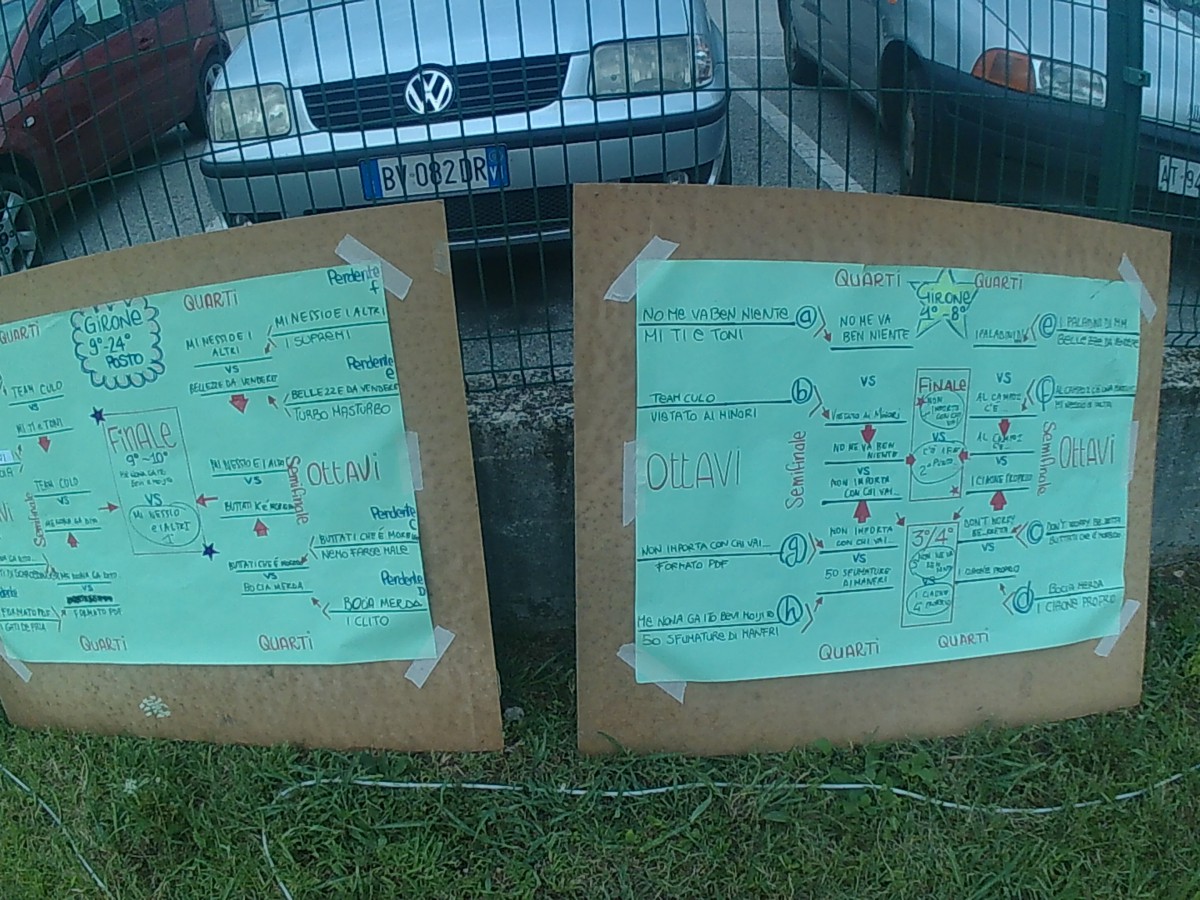 VW
BV 082DR
VI
AT 94
QUARTI
GIRONE
9°-24°
POSTO
QUARTI
Perdente
f
MI NESSIO E I ALTRI
I SUPREMI
MI NESSIO E I
ALTRI
VS
BELLEZZE DA VENDERE
Perdente
e
BELLEZZE DA VENDERE
TURBO MASTURBO
TEAM CULO
VS
MI TI E TONI
FINALE
9°-10°
VS
MI NESSIO
E I ALTRI
1°
TEAM CULO
VS
Semifinale
MI NESSIO E I ALTRI
VS
BUTTATI K'È MORBIDO
Semifinale
OTTAVI
Perdente
C
BUTTATI CHE È MORBIDO
NEMO FARGE MALE
BUTTATI CHE È MORBIDO
VS
BOCIA MERDA
Perdente
D
BOCIA MERDA
I CLITO
ME NONA GA ITO
VS
FORMATO PDF
FORMATO PDF
QUARTI
QUARTI
QUARTI
GIRONE
1°-8°
QUARTI
NO ME VA BEN NIENTE
MI TI E TONI
a
NO ME VA
BEN NIENTE
VS
I PALADINI DI
VS
e
I PALADINI DI MM
BELLEZZE DA VENDERE
TEAM CULO
VISTATO AI MINORI
b
VISTATO AI MINORI
FINALE
NON
IMPORTA
CON CHI
VAI
VS
2° POSTO
AL CAMPO
C'È...
f
NO ME VA BEN
NIENTE
VS
NON IMPORTA
CON CHI VAI...
AL CAMPO
C'È...
VS
I CIBONE PROPRIO
OTTAVI
Semifinale
Semifinale
OTTAVI
NON IMPORTA CON CHI VAI...
FORMATO PDF
g
NON IMPORTA
CON CHI VAI...
VS
50 SFUMATURE
DI MANFRI
3°/4°
NON ME VA
BEN
NIENTE
VS
4° PROPRIO
DON'T WORRY
VS
I CIBONE PROPRIO
c
DON'T WORRY
BUTTATI CHE È MORBIDO
ME NONA GA ITO BEVI MOJITO
50 SFUMATURE DI MANFRI
h
d
BOCIA MERDA
I CIBONE PROPRIO
QUARTI
QUARTI